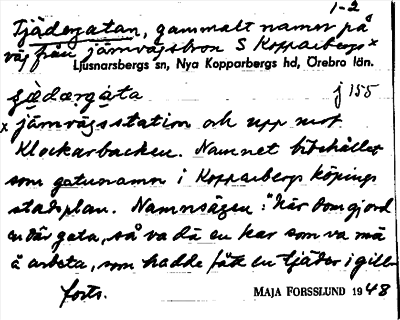 1-2
Tjädergatan, gammalt namn på
väg från järnvägsbron S Kopparbergs x
Ljusnarsbergs sn, Nya Kopparbergs hd, Örebro län.
j 155
x järnvägsstation och upp mot
Klockarbacken. Namnet bibehållet
som gatunamn i Kopparbergs köpings
stadsplan. Namnsägen: "När dom gjord
en där gata, så va dä en kar som va mä
å arbeta, som hadde fått en tjäder i giller
forts.
MAJA FORSSLUND 1948